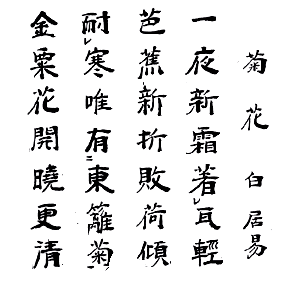 菊花 白居易
一夜新霜着瓦輕
芭蕉新折敗荷傾
耐寒唯有東籬菊
金粟花開曉更清